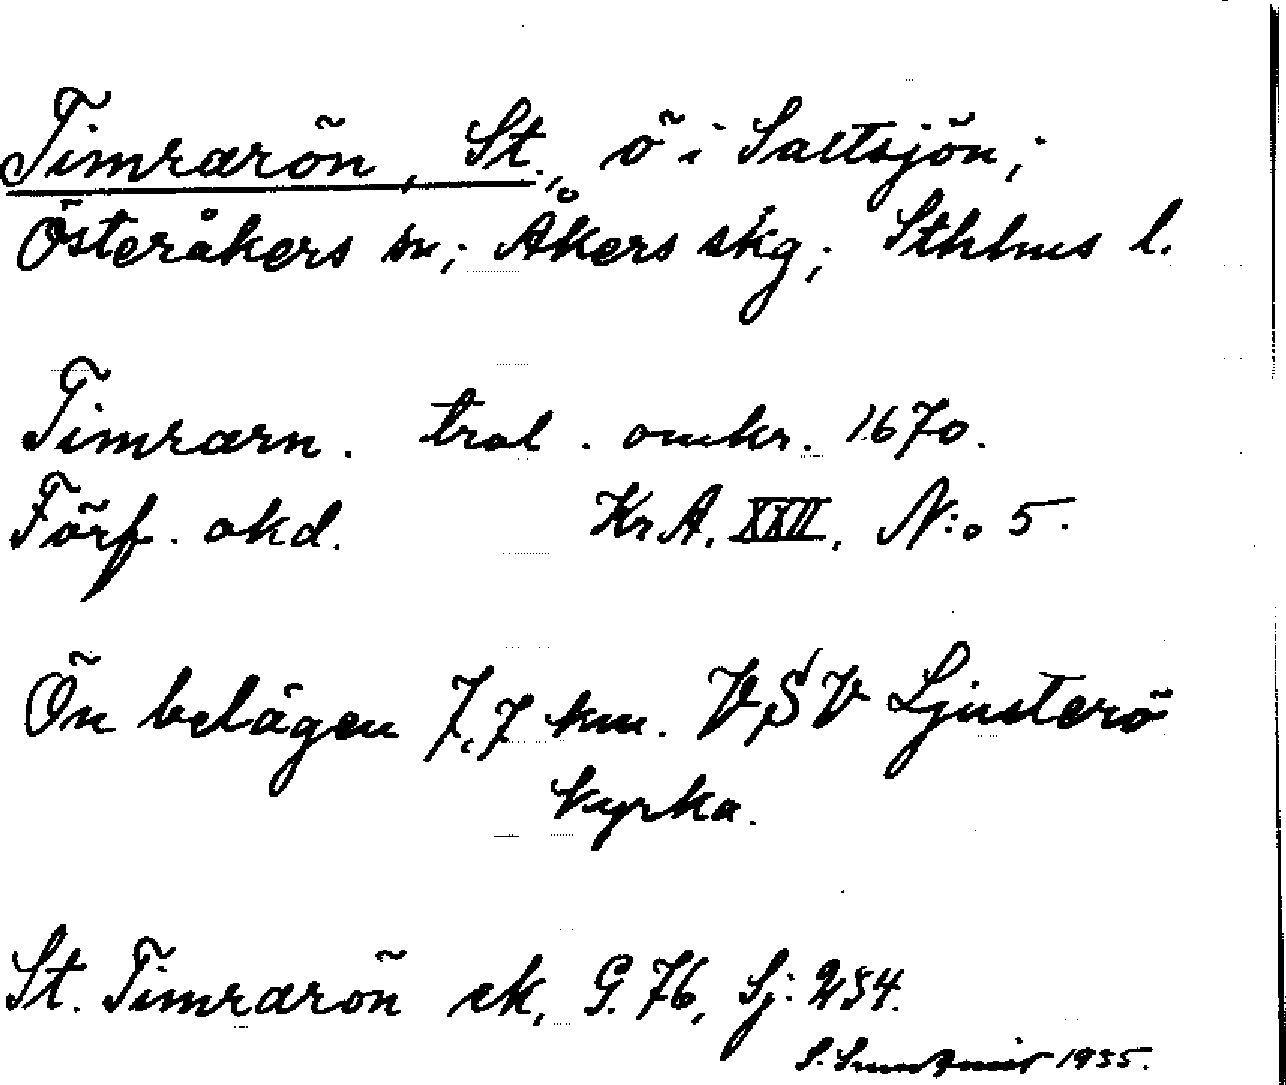 Timrarön, St., ö i Saltsjön;
Österåkers sn; Åkers skg; Sthlms l.
Timrarn. tral. omkr. 1670.
Förf. okd. Kr A. XXII, N:o 5.
Ön belägen 7,7 km. VSV Ljusterö
kyrka.
St. Timrarön ek, G. 76, Sj: 234.
S. 1935.